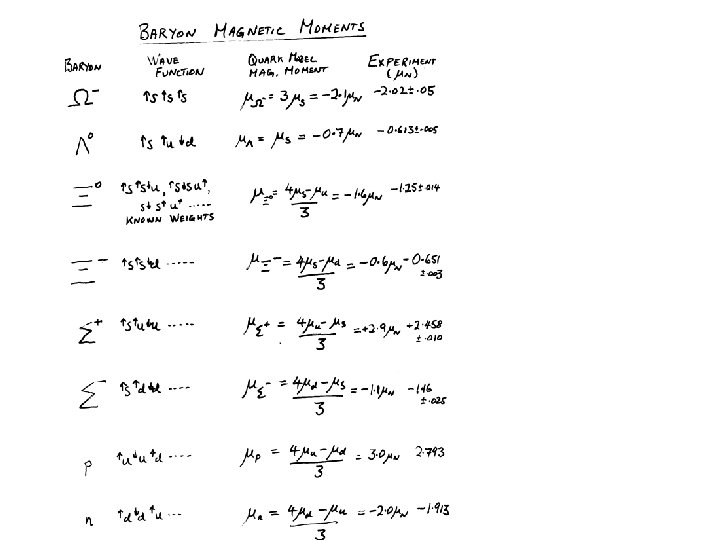 BARYON MAGNETIC MOMENTS
BARYON WAVE FUNCTION QUARK MODEL MAG. MOMENT EXPERIMENT (μN)
Ω⁻ ↑s ↑s ↑s μΩ⁻ = 3μs = -2.1μN -2.02±.05
Λ⁰ ↑s ↑u ↓d μΛ = μs = -0.7μN -0.613±.005
Ξ⁰ ↑s↑s↓u, ↑s↓su↑, μΞ⁰ = 4μs-μu / 3 = -1.6μN -1.25±.014
s↓ s↑ u↑ .....
KNOWN WEIGHTS
Ξ⁻ ↑s↑s↓d ..... μΞ⁻ = 4μs-μd / 3 = -0.6μN -0.651 ±.003
Σ⁺ ↑s↑u↓u ..... μΣ⁺ = 4μu-μs / 3 = +2.9μN +2.458 ±.010
Σ⁻ ↑s↑d↓d .... μΣ⁻ = 4μd-μs / 3 = -1.1μN ±.025
p ↑u↓u↑d .... μp = 4μu-μd / 3 = 3.0μN 2.793
n ↑d↓d↑u ... μn = 4μd-μu / 3 = -2.0μN -1.913